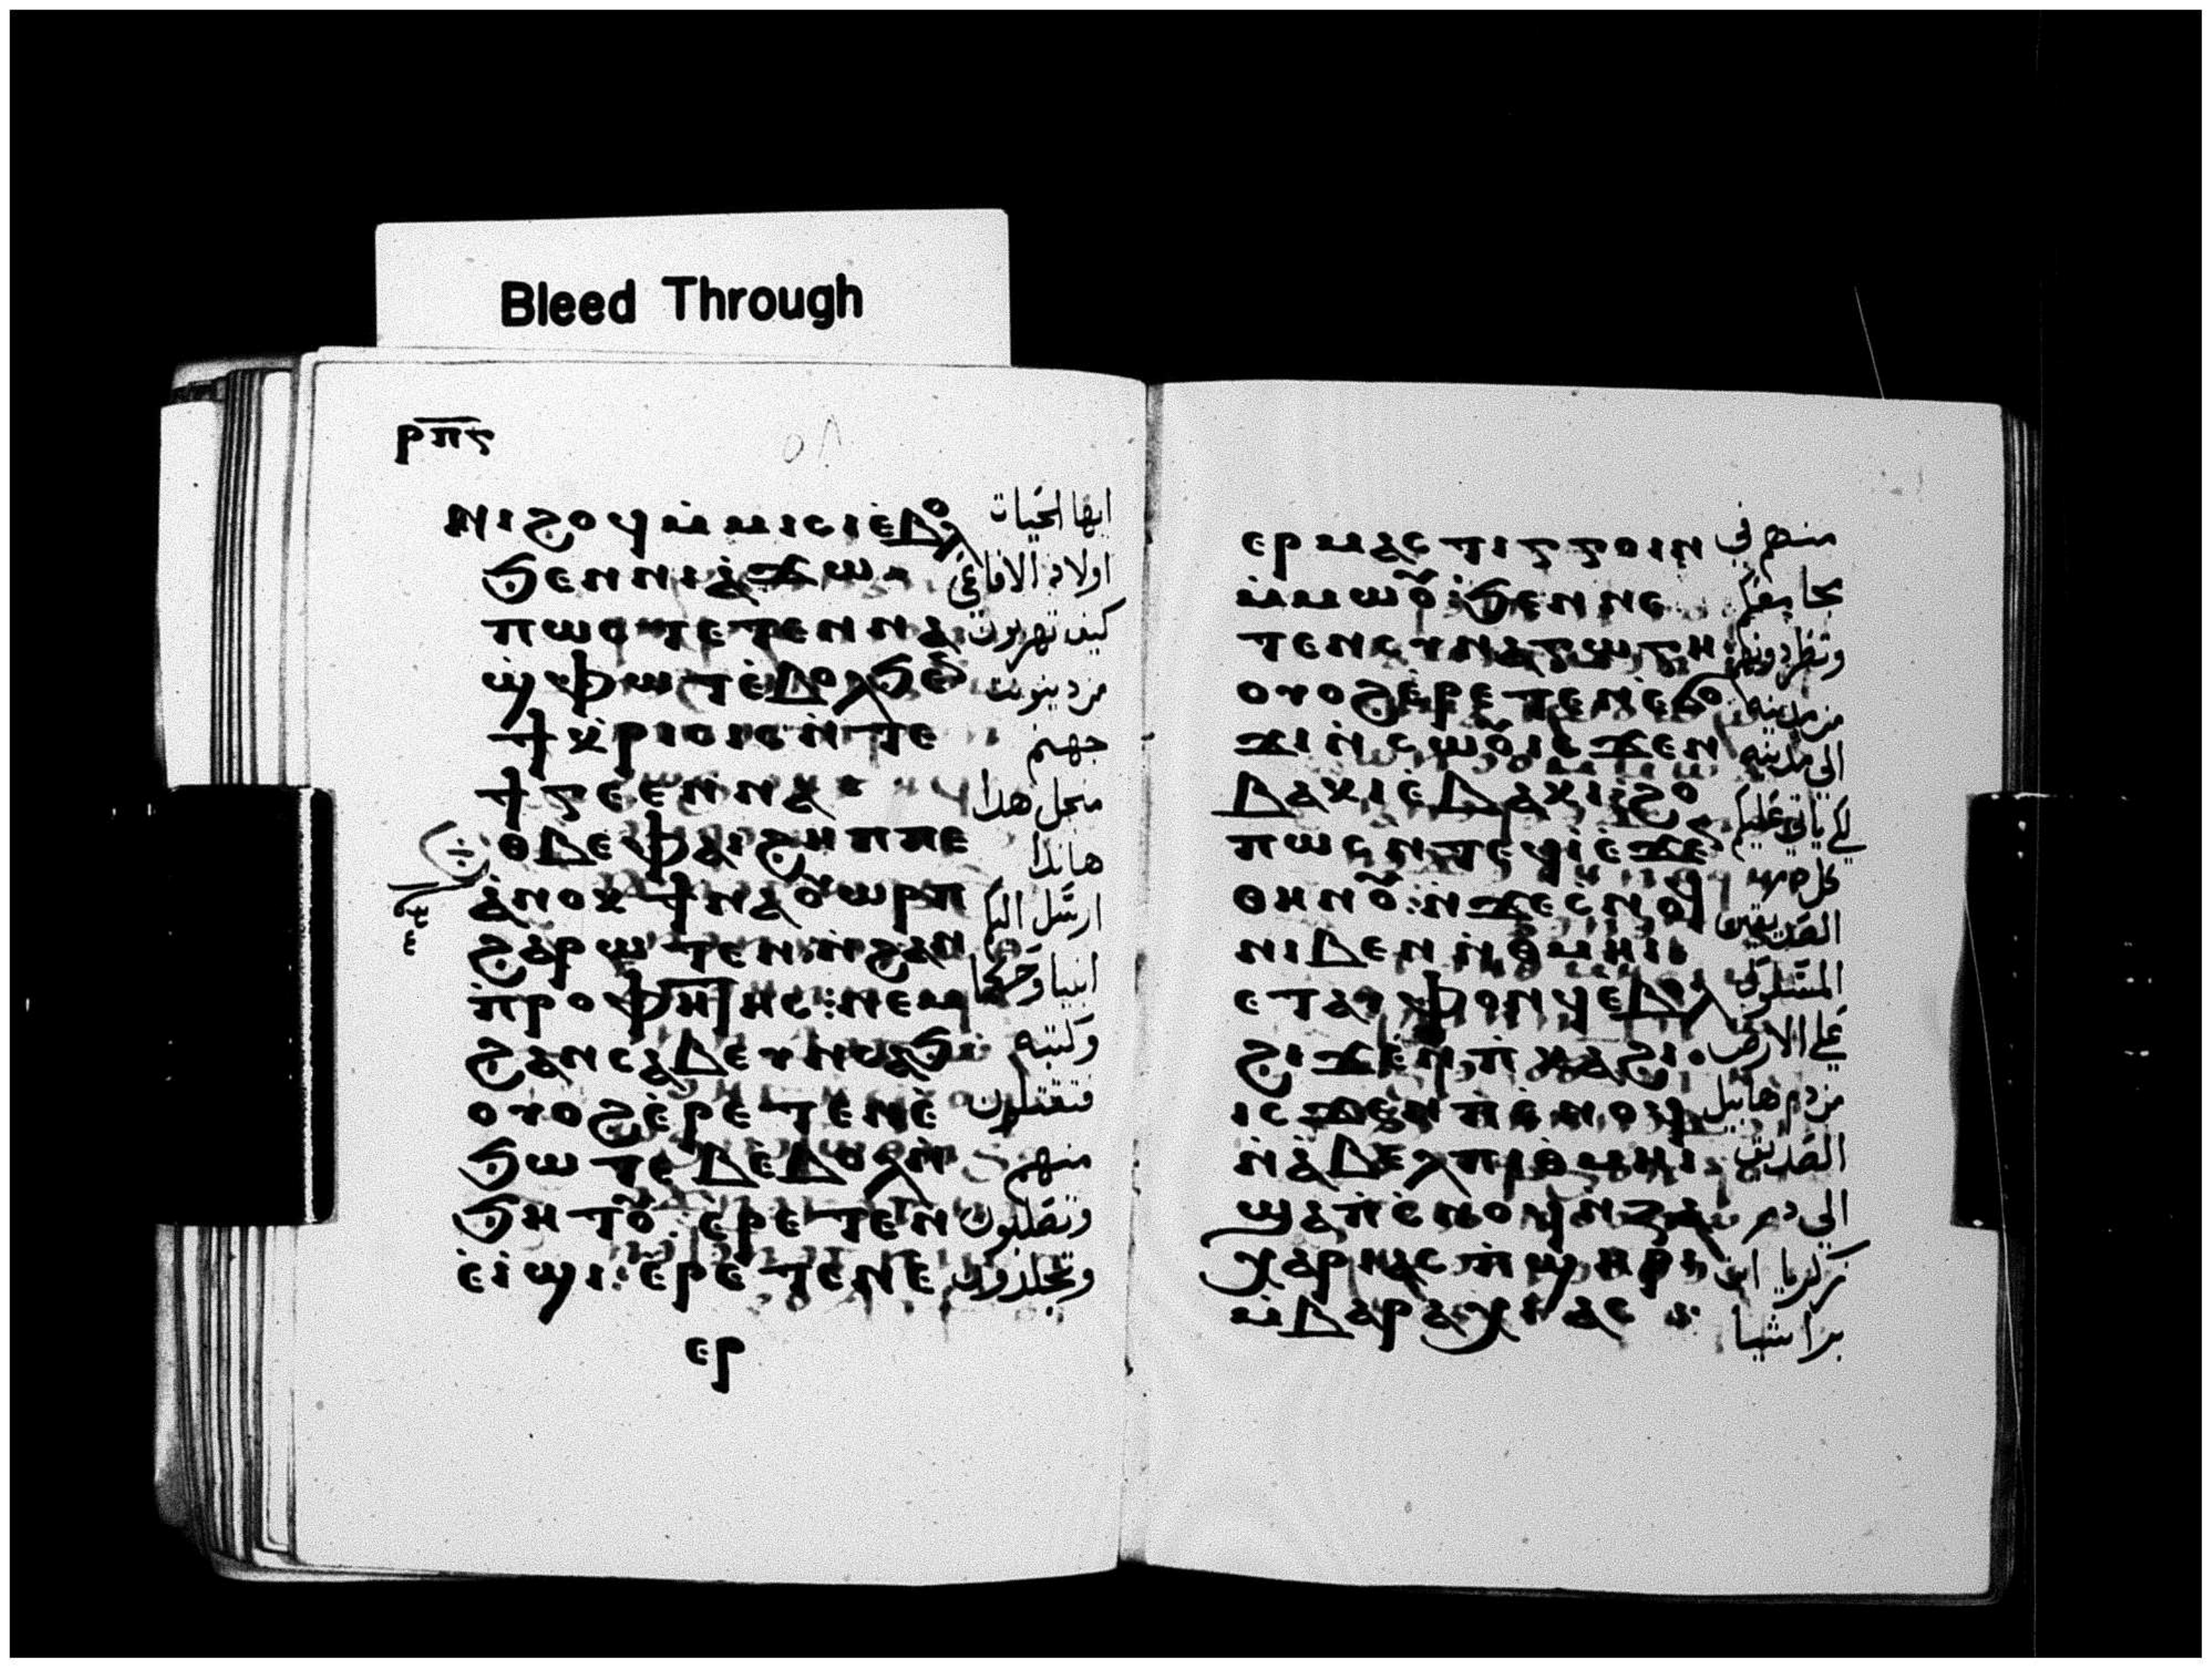 Bleed Through
ⲣⲡⲋ
٥٨
ⲛⲓϩⲟϥ ⲙ̀ⲙⲓⲥⲓ ⲉ̀ⲃⲟⲗ
ايها الحيات
ϧⲉⲛ ⲛⲓⲁ̀ϫⲱ
اولاد الافاعي
ⲡⲱⲥ ⲧⲉⲧⲉⲛⲛⲁ
كيف تهربون
ϣ̀ⲫⲱⲧ ⲉ̀ⲃⲟⲗ ϧⲉ
من دينونت
ϯⲕ̀ⲣⲓⲥⲓⲥ ⲛ̀ⲧⲉ
جهنم
ϯⲅⲉⲉⲛⲛⲁ
منجل هدا
ⲑⲃⲉ ⲫⲁⲓ ϩⲏⲡⲡⲉ
هاندا
ⲁ̀ⲛⲟⲕ ϯⲛⲁⲟⲩⲱⲣⲡ
ارسل اليكم
ϩⲁⲣⲱⲧⲉⲛ ⲛ̀ϩⲁⲛ
انبيا وحكما
ⲡ̀ⲣⲟⲫⲏⲧⲏⲥ : ⲛⲉⲙ
ϩⲁⲛⲥⲁⲃⲉⲩ ⲛⲥⲁϧ
وكتبه
ⲟⲩⲟϩ ⲉ̀ⲣⲉⲧⲉⲛⲉ̀
فتقتلون
ϧⲱⲧⲉⲃ ⲉ̀ⲃⲟⲗ ⲛ̀
منهم
ϧⲏⲧⲟⲩ : ⲉⲣⲉⲧⲉⲛ
وتصلبون
ⲉ̀ⲓ̀ϣⲓ : ⲉ̀ⲣⲉⲧⲉⲛⲉ
وتجلدون
ⲉⲣ
ⲉⲣⲙⲁⲥⲧⲓⲅⲅⲟⲓⲛ
منهم في
ⲙ̀ⲙⲱⲟⲩ : ϧⲉⲛ ⲛⲉ
مجامعكم
ⲧⲉⲛⲥⲩⲛⲁⲅⲱⲅⲏ
وتطردونهم
ⲟⲩⲟϩ ⲉ̀ⲣⲉⲧⲉⲛⲉ̀ϭⲟ
من مدينه
ϫⲓ ⲛ̀ⲥⲱⲟⲩ ⲓⲥϫⲉⲛ
الى مدينه
ⲃⲁⲕⲓ ⲉ̀ⲃⲁⲕⲓ : ϩⲟ
لكي ياتي عليكم
ⲡⲱⲥ ⲛ̀ⲧⲉϥⲓ̀ ⲉ̀ϫⲉ
كل دم
ⲑⲏⲛⲟⲩ : ⲛ̀ϫⲉ ⲥ̀ⲛⲟϥ
الصديقين
ⲛⲓⲃⲉⲛ ⲛ̀ⲑⲙⲏⲓ
ⲉⲧⲁⲩⲫⲟⲛϥ ⲉ̀ⲃⲟⲗ
على الارض
ϩⲓϫⲉⲛ ⲡ̀ⲕⲁϩⲓ
من دم هابيل
ⲓⲥϫⲉⲛ ⲡ̀ⲥⲛⲟϥ
الصديق
ⲛ̀ⲁ̀ⲃⲉⲗ ⲡⲓⲑⲙⲏⲓ
الى دم
ϣⲁ ⲡ̀ⲥⲛⲟϥ ⲛ̀ⲍⲁ
زكريا ابن
ⲭⲁⲣⲓⲁⲥ ⲡ̀ϣⲏⲣⲓ
براشيا
ⲙ̀ⲃⲁⲣⲁⲭⲓⲁⲥ